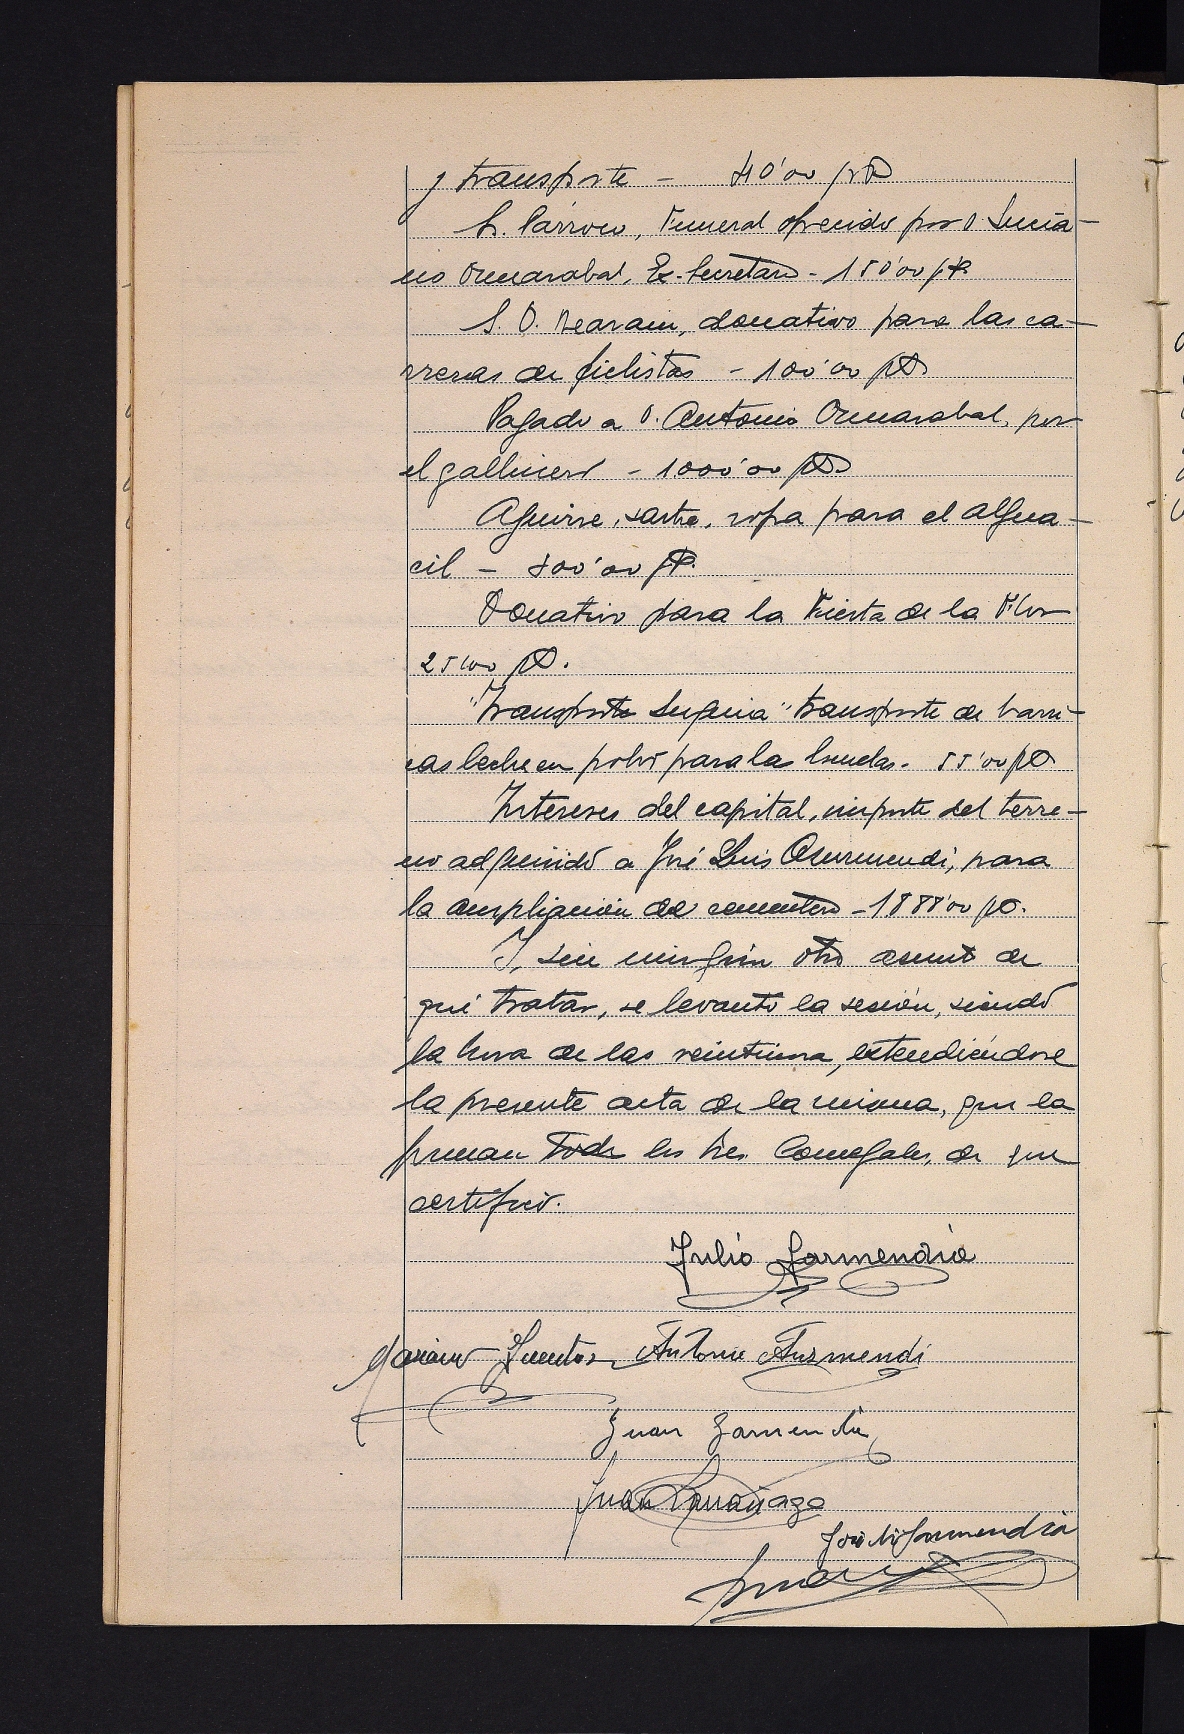 y transporte - 40'00 pts
S. Párroco, Funeral ofrecido por D. Lucia-
no Ormazabal, Ex-Secretario - 150'00 pts
S. D. Beasain, donativo para las ca-
rreras de ciclistas - 100'00 pts
Pagado a D. Antonio Ormazabal, por
el gallinero - 1000'00 pts
Aguirre, sastre, ropa para el algua-
cil - 400'00 pts.
Donativo para la Fiesta de la Flor
25'00 pts.
"Transporte Segura" transporte de barri-
cas leche en polvo para la 55'00 pts
Intereses del capital, importe del terre-
no adquirido a José Luis Aurmendi, para
la ampliación de cementerio - 1888'00 pts.
Y, sin ningún otro asunto de
qué tratar, se levantó la sesión, siendo
la hora de las veintiuna, extendiéndose
la presente acta de la misma, que la
firman todos los Sres. Concejales, de que
certifico.
Julio Garmendia
Mariano Fuentes Antonio Auzmendi
Juan Garmendia
Juan Larrañaga
José Mª Garmendia